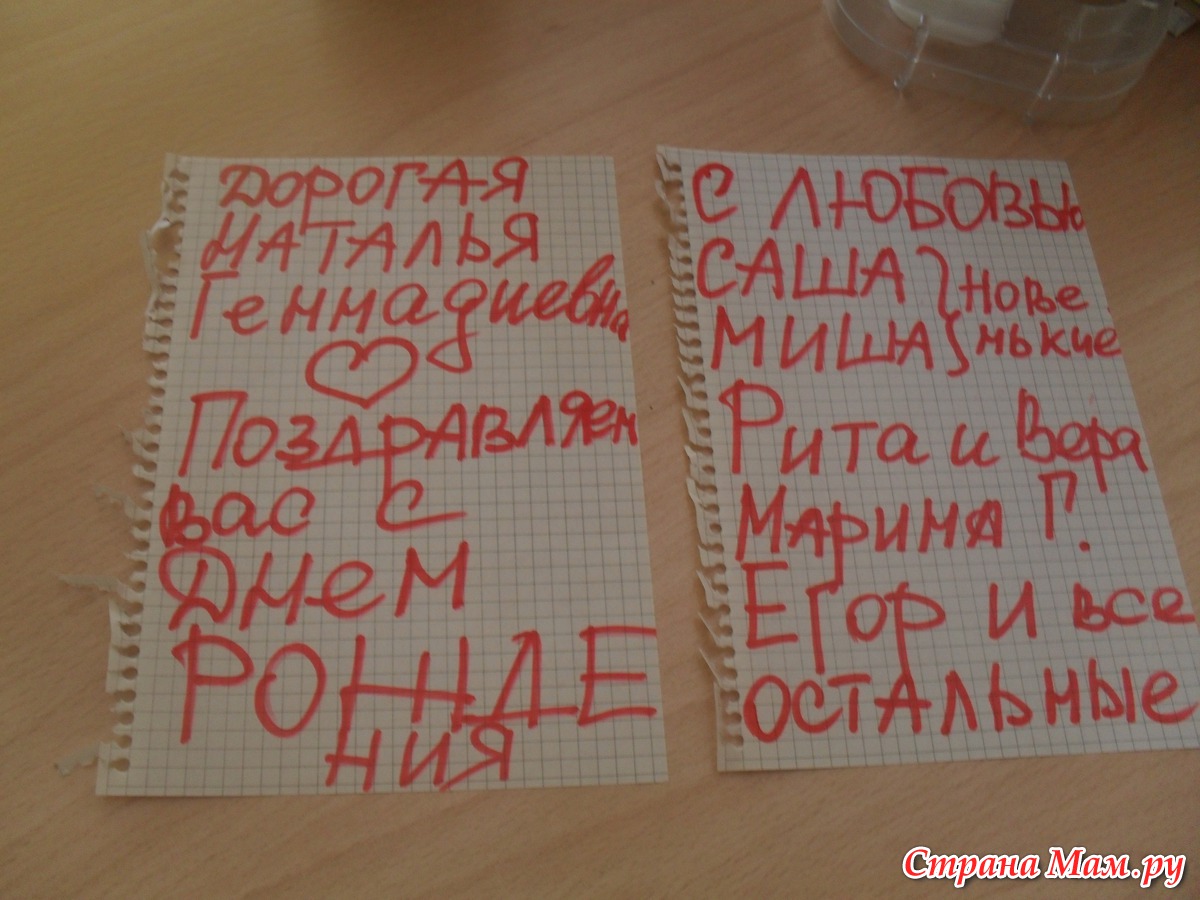 ДОРОГАЯ
НАТАЛЬЯ
Геннадиевна
Поздравляем
вас с
Днем
РОЖДЕ
НИЯ
С ЛЮБОВЬЮ
САША } Нове
МИША } нькие
Рита и Вера
Марина Г.
Егор и все
ОСТАЛЬНЫЕ
Страна Мам.ру